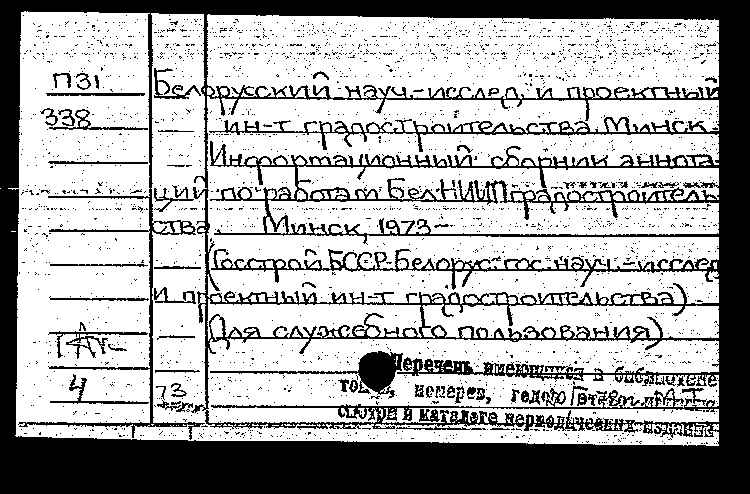 П31 Белорусский науч.-исслед. и проектный
338 ин-т градостроительства. Минск.
Информационный сборник аннота-
ций по работам БелНИИПградостроитель-
ства. Минск, 1973-
(Госстрой БССР. Белорус. гос. науч.-исслед.
и проектный ин-т градостроительства)
(Для служебного пользования)
Перечень имеющихся в библиотеке
4 73 номеров, годов
смотри в каталоге периодических изданий